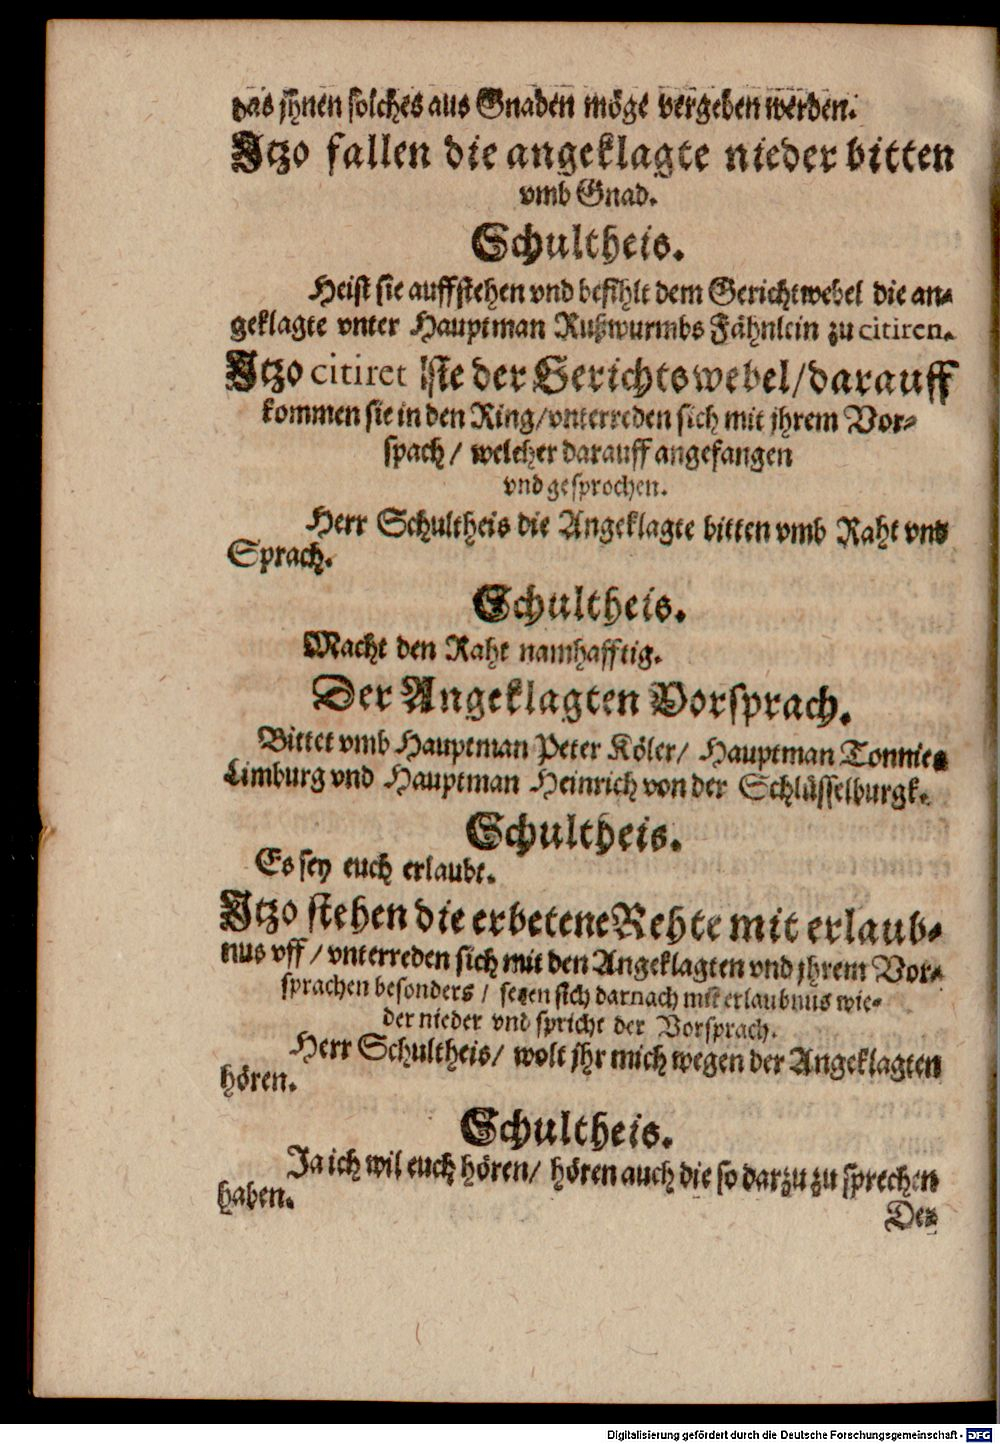 das jhnen solches aus Gnaden möge vergeben werden.
Itzo fallen die angeklagte nieder bitten
vmb Gnad.
Schultheis.
Heist sie auffstehen vnd befihlt dem Gerichtwebel die an-
geklagte vnter Hauptman Rußwurmbs Fähnlein zu citiren.
Itzo citiret sie der Gerichtswebel/darauff
kommen sie in den Ring/vnterreden sich mit jhrem Vor-
spach/ welcher darauff angefangen
vnd gesprochen.
Herr Schultheis die Angeklagte bitten vmb Raht vnd
Sprach.
Schultheis.
Macht den Raht namhafftig.
Der Angeklagten Vorsprach.
Bittet vmb Hauptman Peter Köler/ Hauptman Tonnies
Limburg vnd Hauptman Heinrich von der Schlüsselburgk.
Schultheis.
Es sey euch erlaubt.
Itzo stehen die erbetene Rehte mit erlaub-
nus vff/vnterreden sich mit den Angeklagten vnd jhrem Vor-
sprachen besonders/ setzen sich darnach mit erlaubnus wie-
der nieder vnd spricht der Vorsprach.
Herr Schultheis/ wolt jhr mich wegen der Angeklagten
hören.
Schultheis.
Ja ich wil euch hören/ hören auch die so darzu zu sprechen
haben.
Der
Digitalisierung gefördert durch die Deutsche Forschungsgemeinschaft - DFG